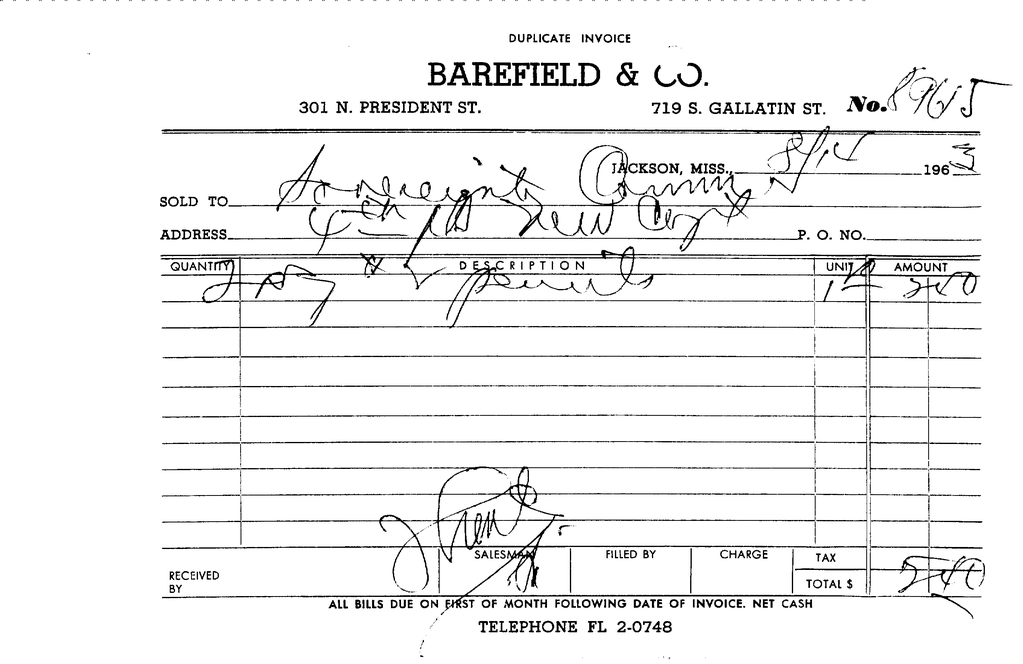 DUPLICATE INVOICE
BAREFIELD & CO.
301 N. PRESIDENT ST. 719 S. GALLATIN ST. No. 89615
JACKSON, MISS., 8/14 1963
SOLD TO Sovereignty Comm
ADDRESS 4th New Capt P. O. NO.
QUANTITY DESCRIPTION UNIT AMOUNT
2 Dz # 2 pencils 240
SALESMAN FILLED BY CHARGE TAX
RECEIVED BY TOTAL $ 240
ALL BILLS DUE ON FIRST OF MONTH FOLLOWING DATE OF INVOICE. NET CASH
TELEPHONE FL 2-0748